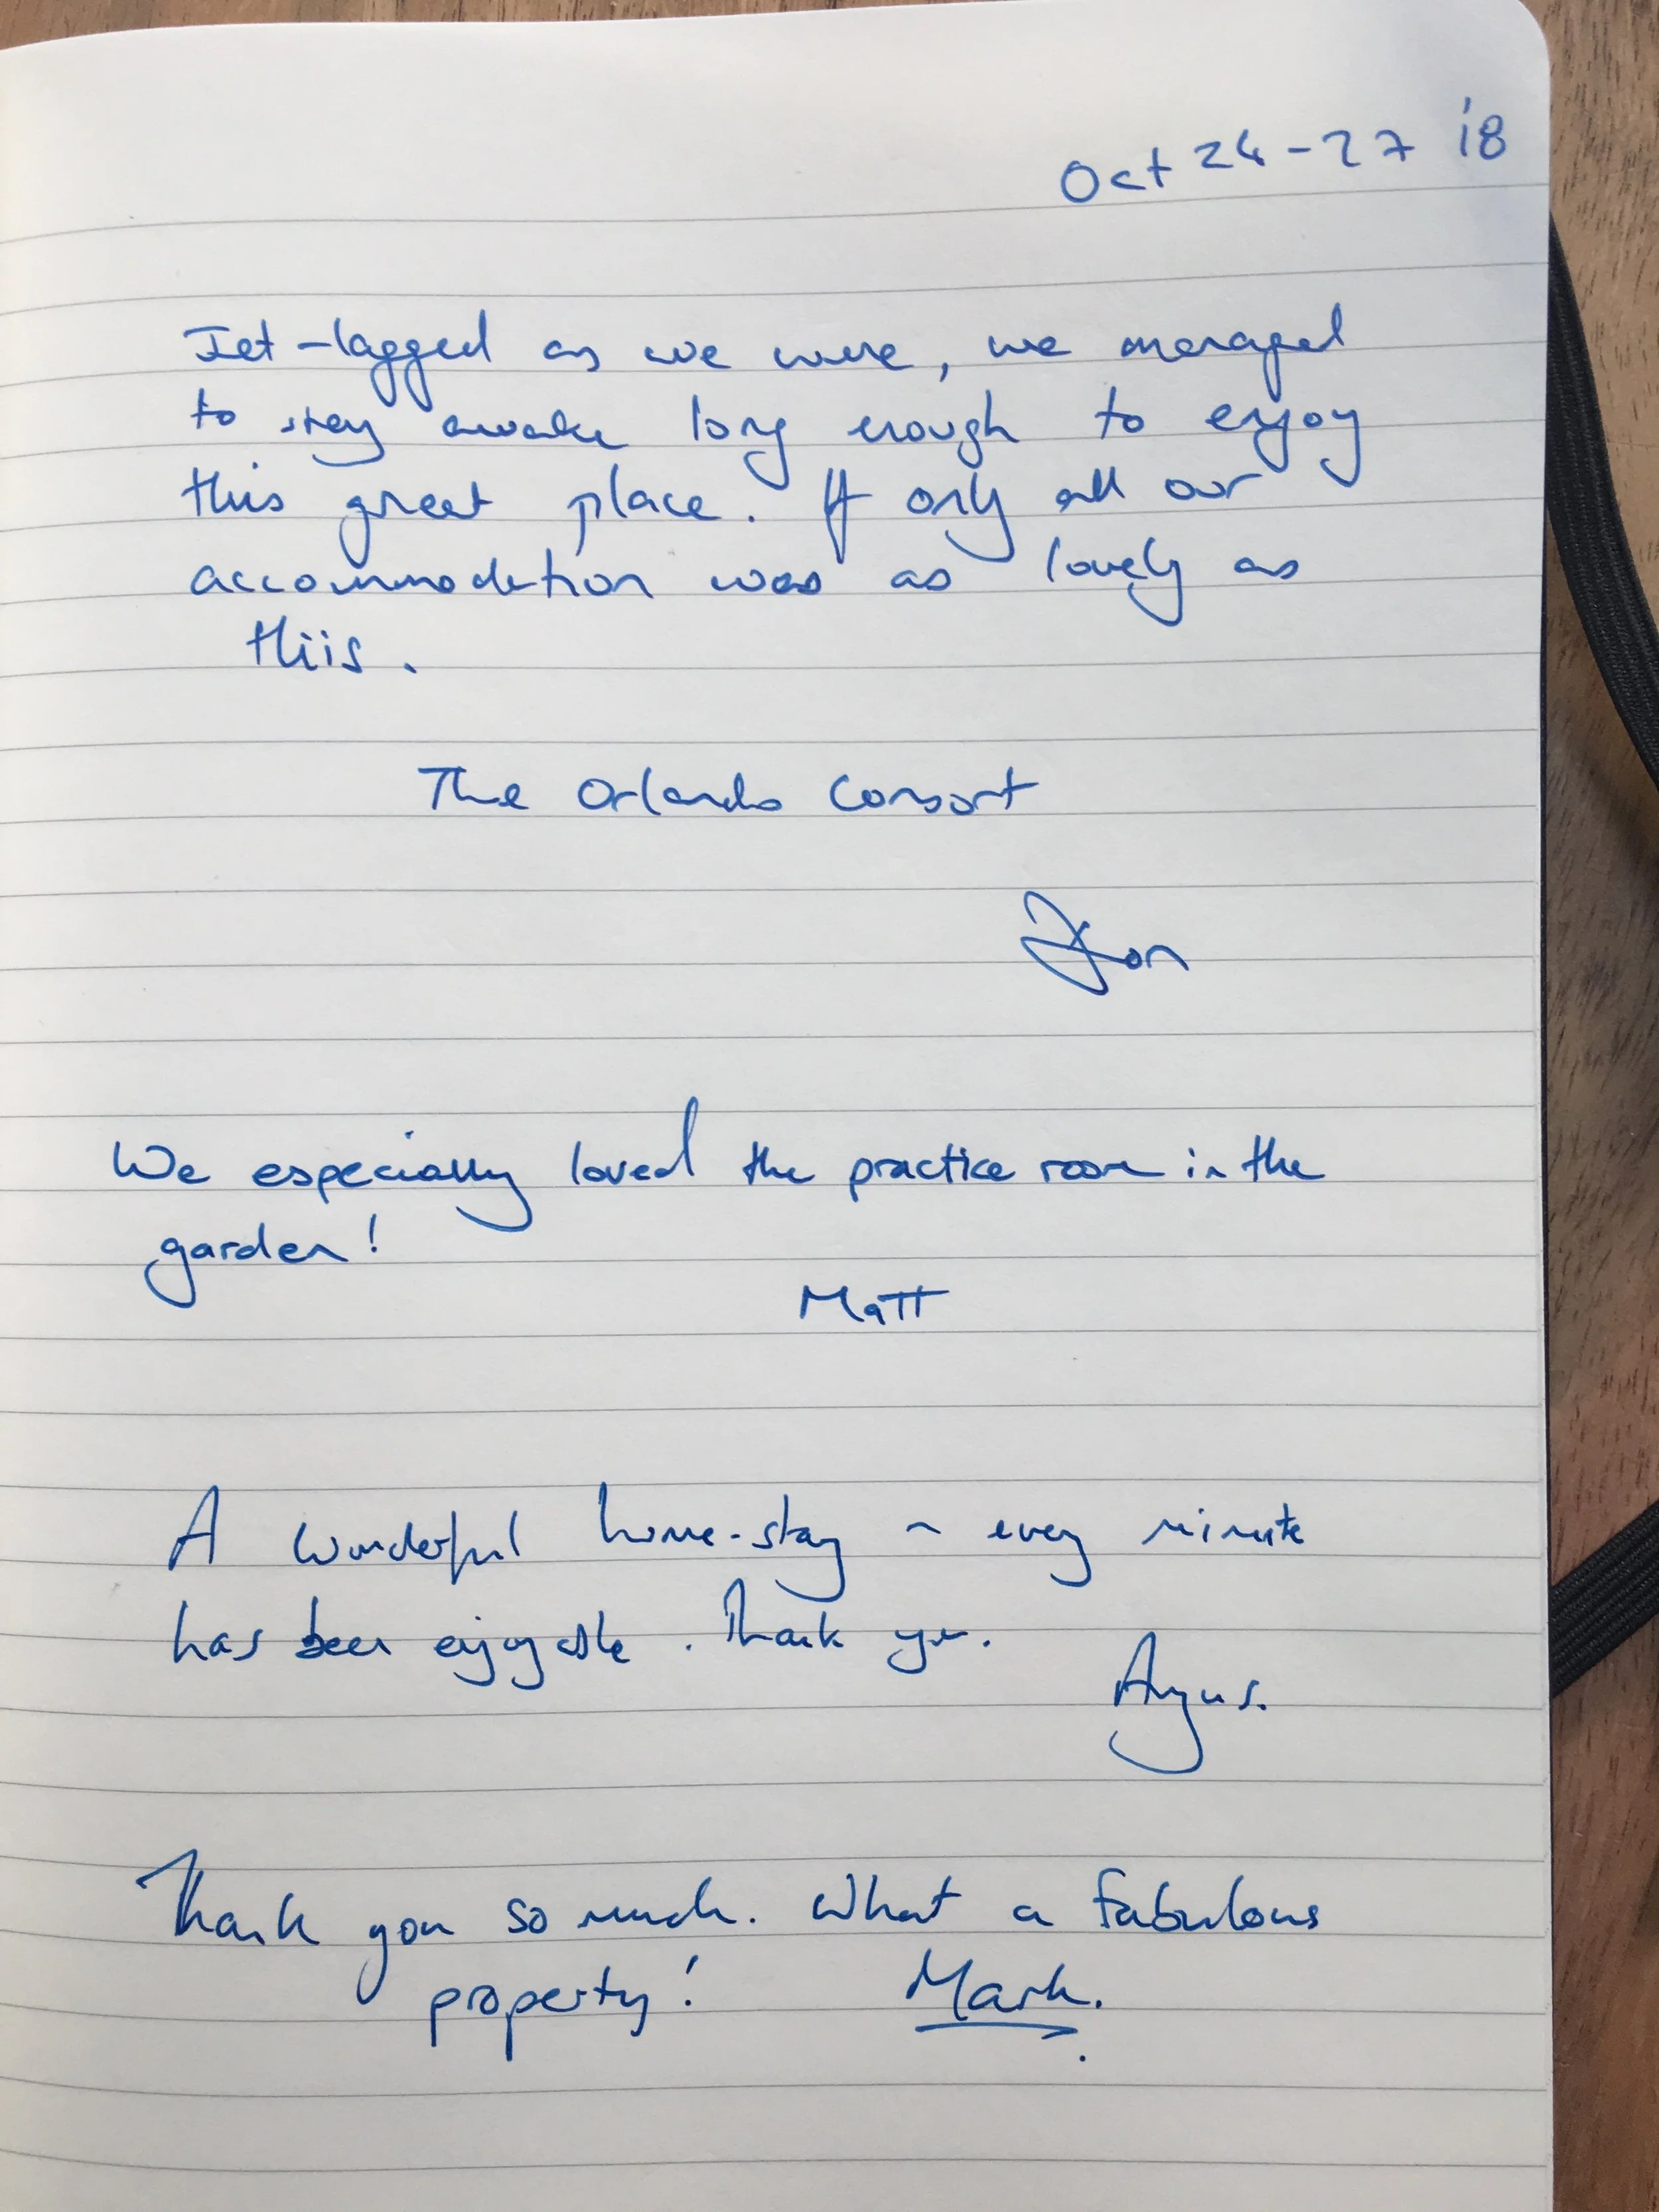 Oct 24-27 '18
Jet-lagged as we were, we managed
to stay awake long enough to enjoy
this great place. If only all our
accommodation was as lovely as
this.
The Orlando Consort
We especially loved the practice room in the
garden!
Matt
A wonderful home-stay ~ every minute
has been enjoyable. Thank you.
Angus.
Thank you so much. What a fabulous
property! Mark.